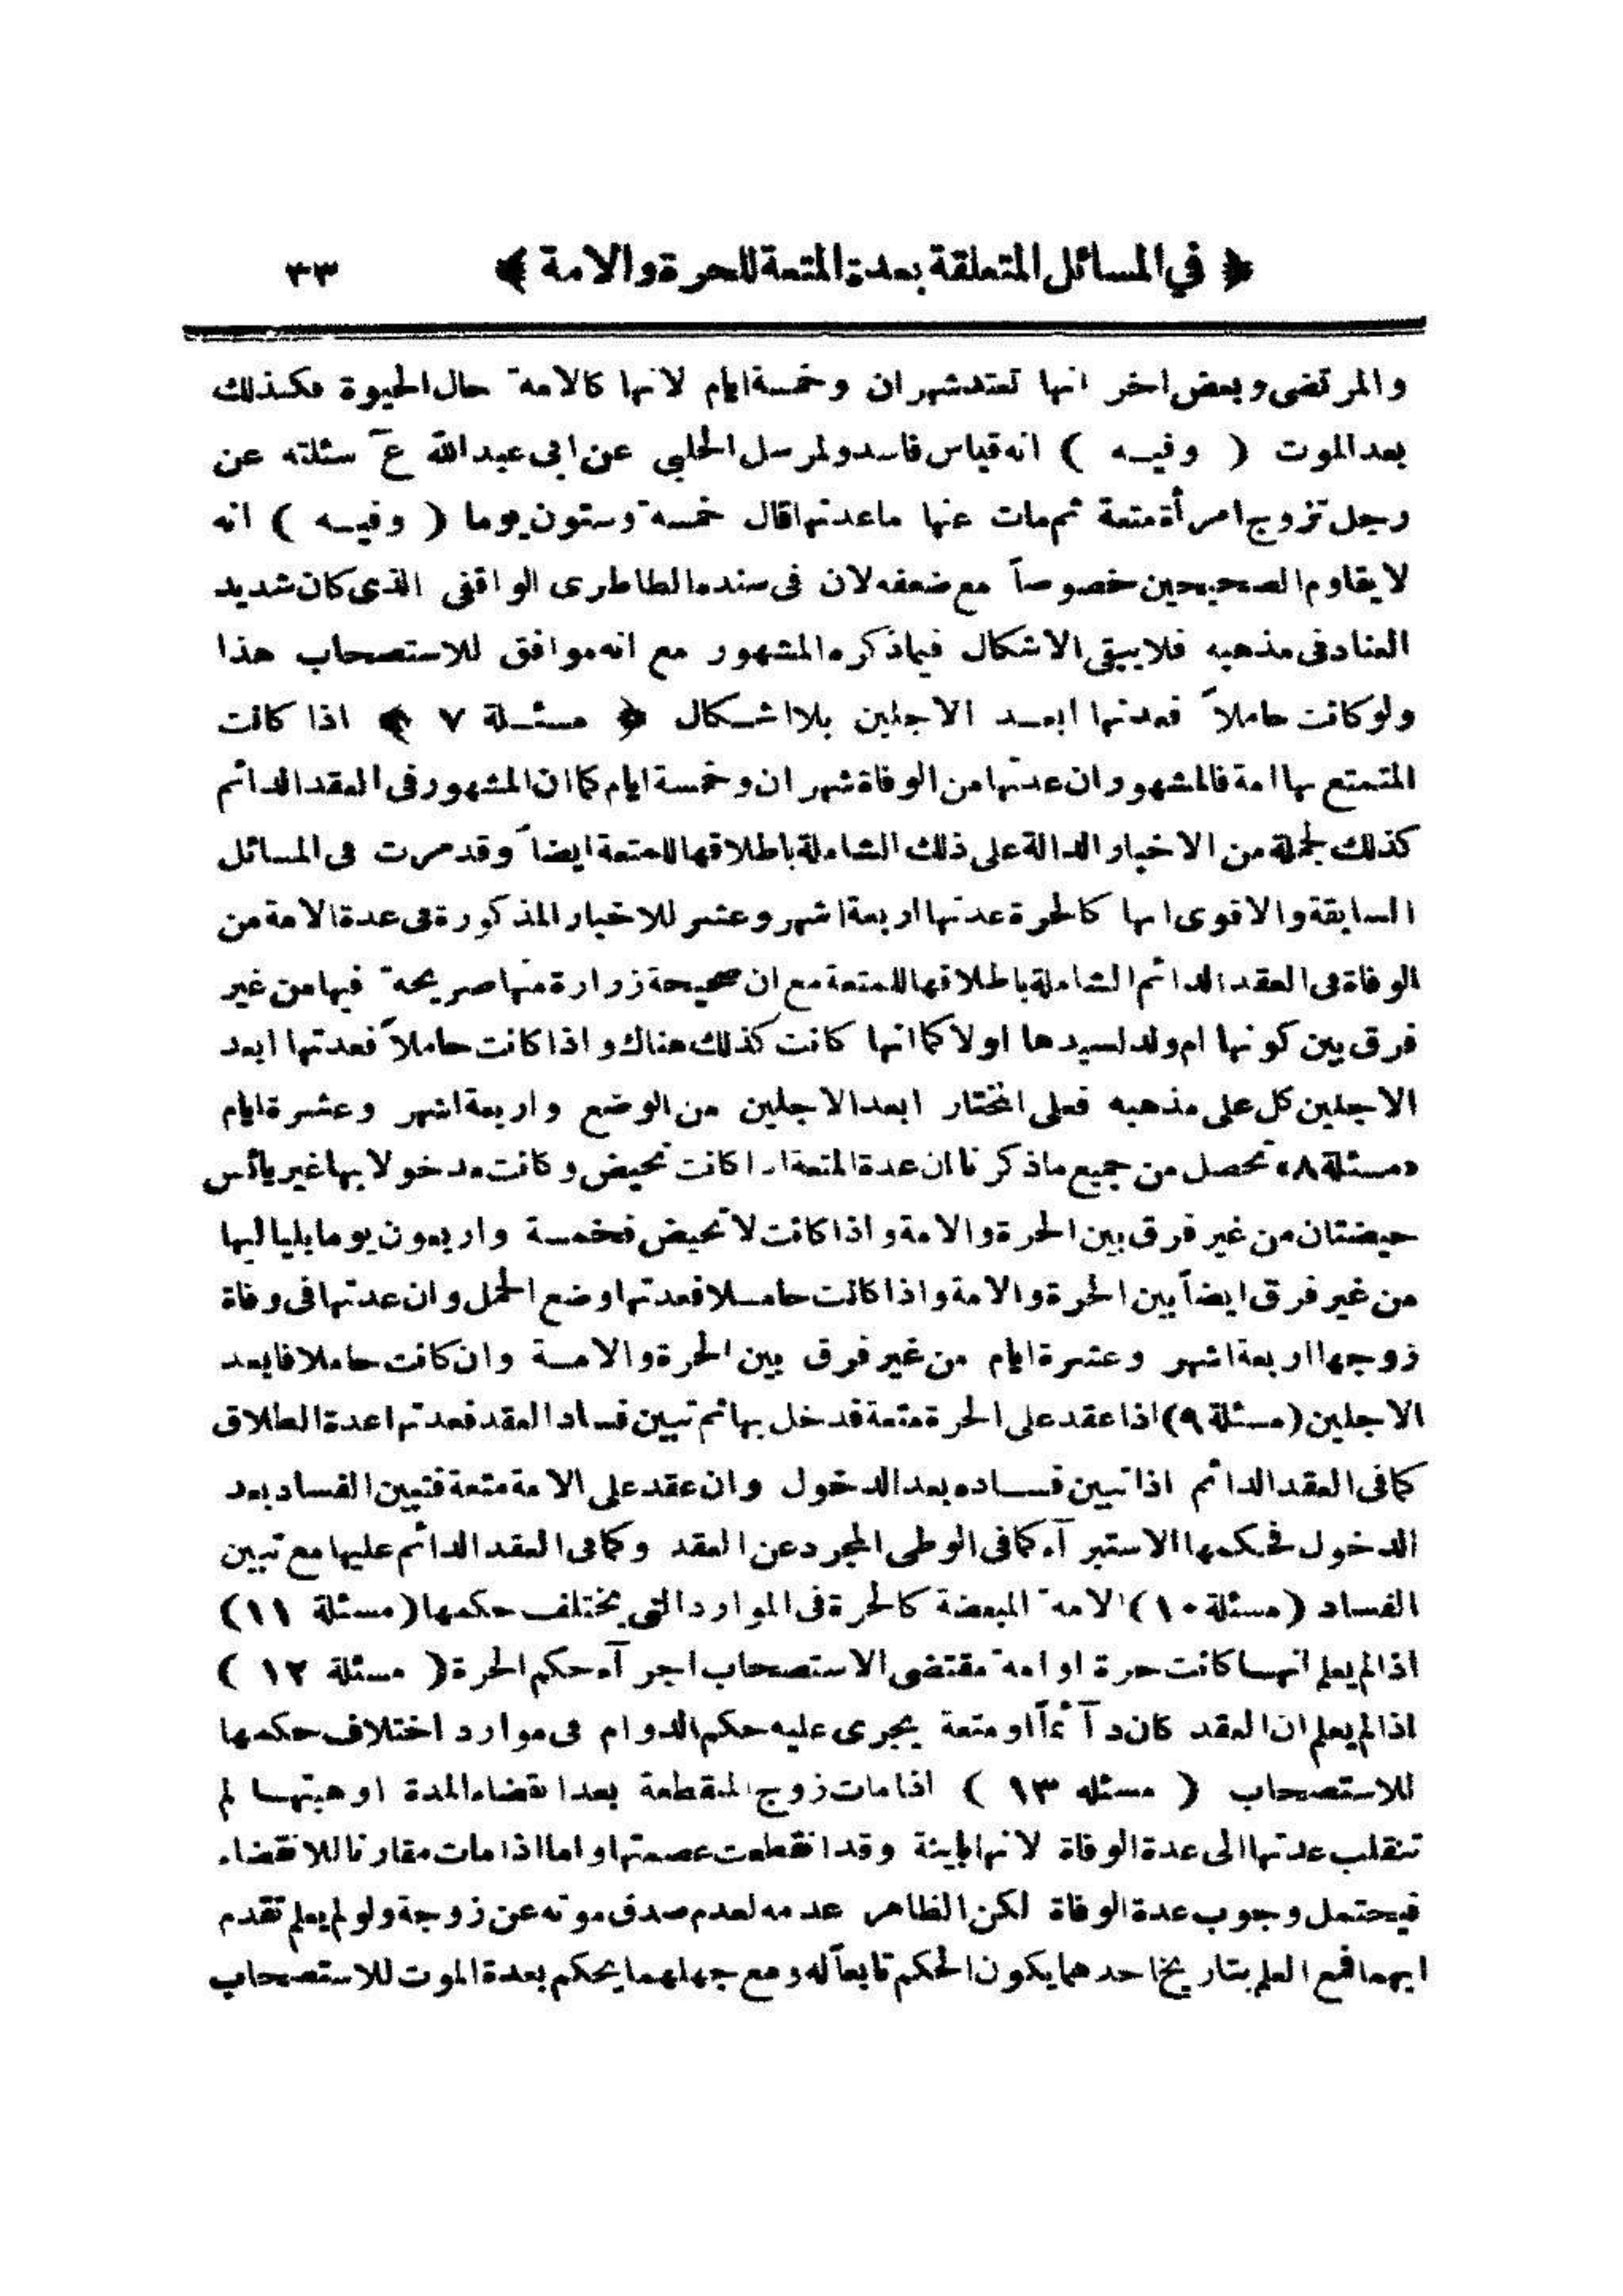 ﴿ في المسائل المتعلقة بعدة المتعة للحرة والامة ﴾ ٣٣
والمرتضى وبعض اخر انها تعتد شهران وخمسة ايام لانها كالامة حال الحيوة فكذلك
بعد الموت ( وفيه ) انه قياس فاسد ولمرسل الحلبي عن ابى عبدالله ع سئلته عن
رجل تزوج امرأة متعة ثم مات عنها ماعدتها قال خمسة وستون يوما ( وفيه ) انه
لا يقاوم الصحيحين خصوصاً مع ضعفه لان فى سنده الطاطرى الواقفى الذى كان شديد
العناد فى مذهبه فلا يبقى الاشكال فيما ذكره المشهور مع انه موافق للاستصحاب هذا
ولو كانت حاملاً فعدتها ابعد الاجلين بلا اشكال ﴿ مسئلة ٧ ﴾ اذا كانت
المتمتع بها امة فالمشهور ان عدتها من الوفاة شهران وخمسة ايام كما ان المشهور فى العقد الدائم
كذلك لجملة من الاخبار الدالة على ذلك الشاملة باطلاقها للمتعة ايضاً وقد مرت فى المسائل
السابقة والاقوى انها كالحرة عدتها اربعة اشهر وعشر للاخبار المذكورة فى عدة الامة من
الوفاة فى العقد الدائم الشاملة باطلاقها للمتعة مع ان صحيحة زرارة منها صريحة فيها من غير
فرق بين كونها ام ولد لسيدها اولا كما انها كانت كذلك هناك واذا كانت حاملاً فعدتها ابعد
الاجلين كل على مذهبه فعلى المختار ابعد الاجلين من الوضع واربعة اشهر وعشرة ايام
«مسئلة ٨» تحصل من جميع ماذكرنا ان عدة المتعة اذا كانت تحيض وكانت مدخولا بها غير يائس
حيضتان من غير فرق بين الحرة والامة واذا كانت لا تحيض فخمسة واربعون يوما بلياليها
من غير فرق ايضاً بين الحرة والامة واذا كانت حاملا فعدتها وضع الحمل وان عدتها فى وفاة
زوجها اربعة اشهر وعشرة ايام من غير فرق بين الحرة والامة وان كانت حاملا فابعد
الاجلين (مسئلة ٩) اذا عقد على الحرة متعة فدخل بها ثم تبين فساد العقد فعدتها عدة الطلاق
كما فى العقد الدائم اذا تبين فساده بعد الدخول وان عقد على الامة متعة فتبين الفساد بعد
الدخول فحكمها الاستبرآء كما فى الوطى المجرد عن العقد وكما فى العقد الدائم عليها مع تبين
الفساد (مسئلة ١٠) الامة المبعضة كالحرة فى الموارد التى يختلف حكمها (مسئلة ١١)
اذا لم يعلم انها كانت حرة او امة مقتضى الاستصحاب اجرآء حكم الحرة ( مسئلة ١٢ )
اذا لم يعلم ان العقد كان دآئماً او متعة يجرى عليه حكم الدوام فى موارد اختلاف حكمها
للاستصحاب ( مسئله ١٣ ) اذا مات زوج المنقطعة بعد انقضاء المدة او هبتها لم
تنقلب عدتها الى عدة الوفاة لانها باينة وقد انقطعت عصمتها واما اذا مات مقارنا للانقضاء
فيحتمل وجوب عدة الوفاة لكن الظاهر عدمه لعدم صدق موته عن زوجة ولو لم يعلم تقدم
ايهما فمع العلم بتاريخ احدهما يكون الحكم تابعاً له ومع جهلهما يحكم بعدة الموت للاستصحاب